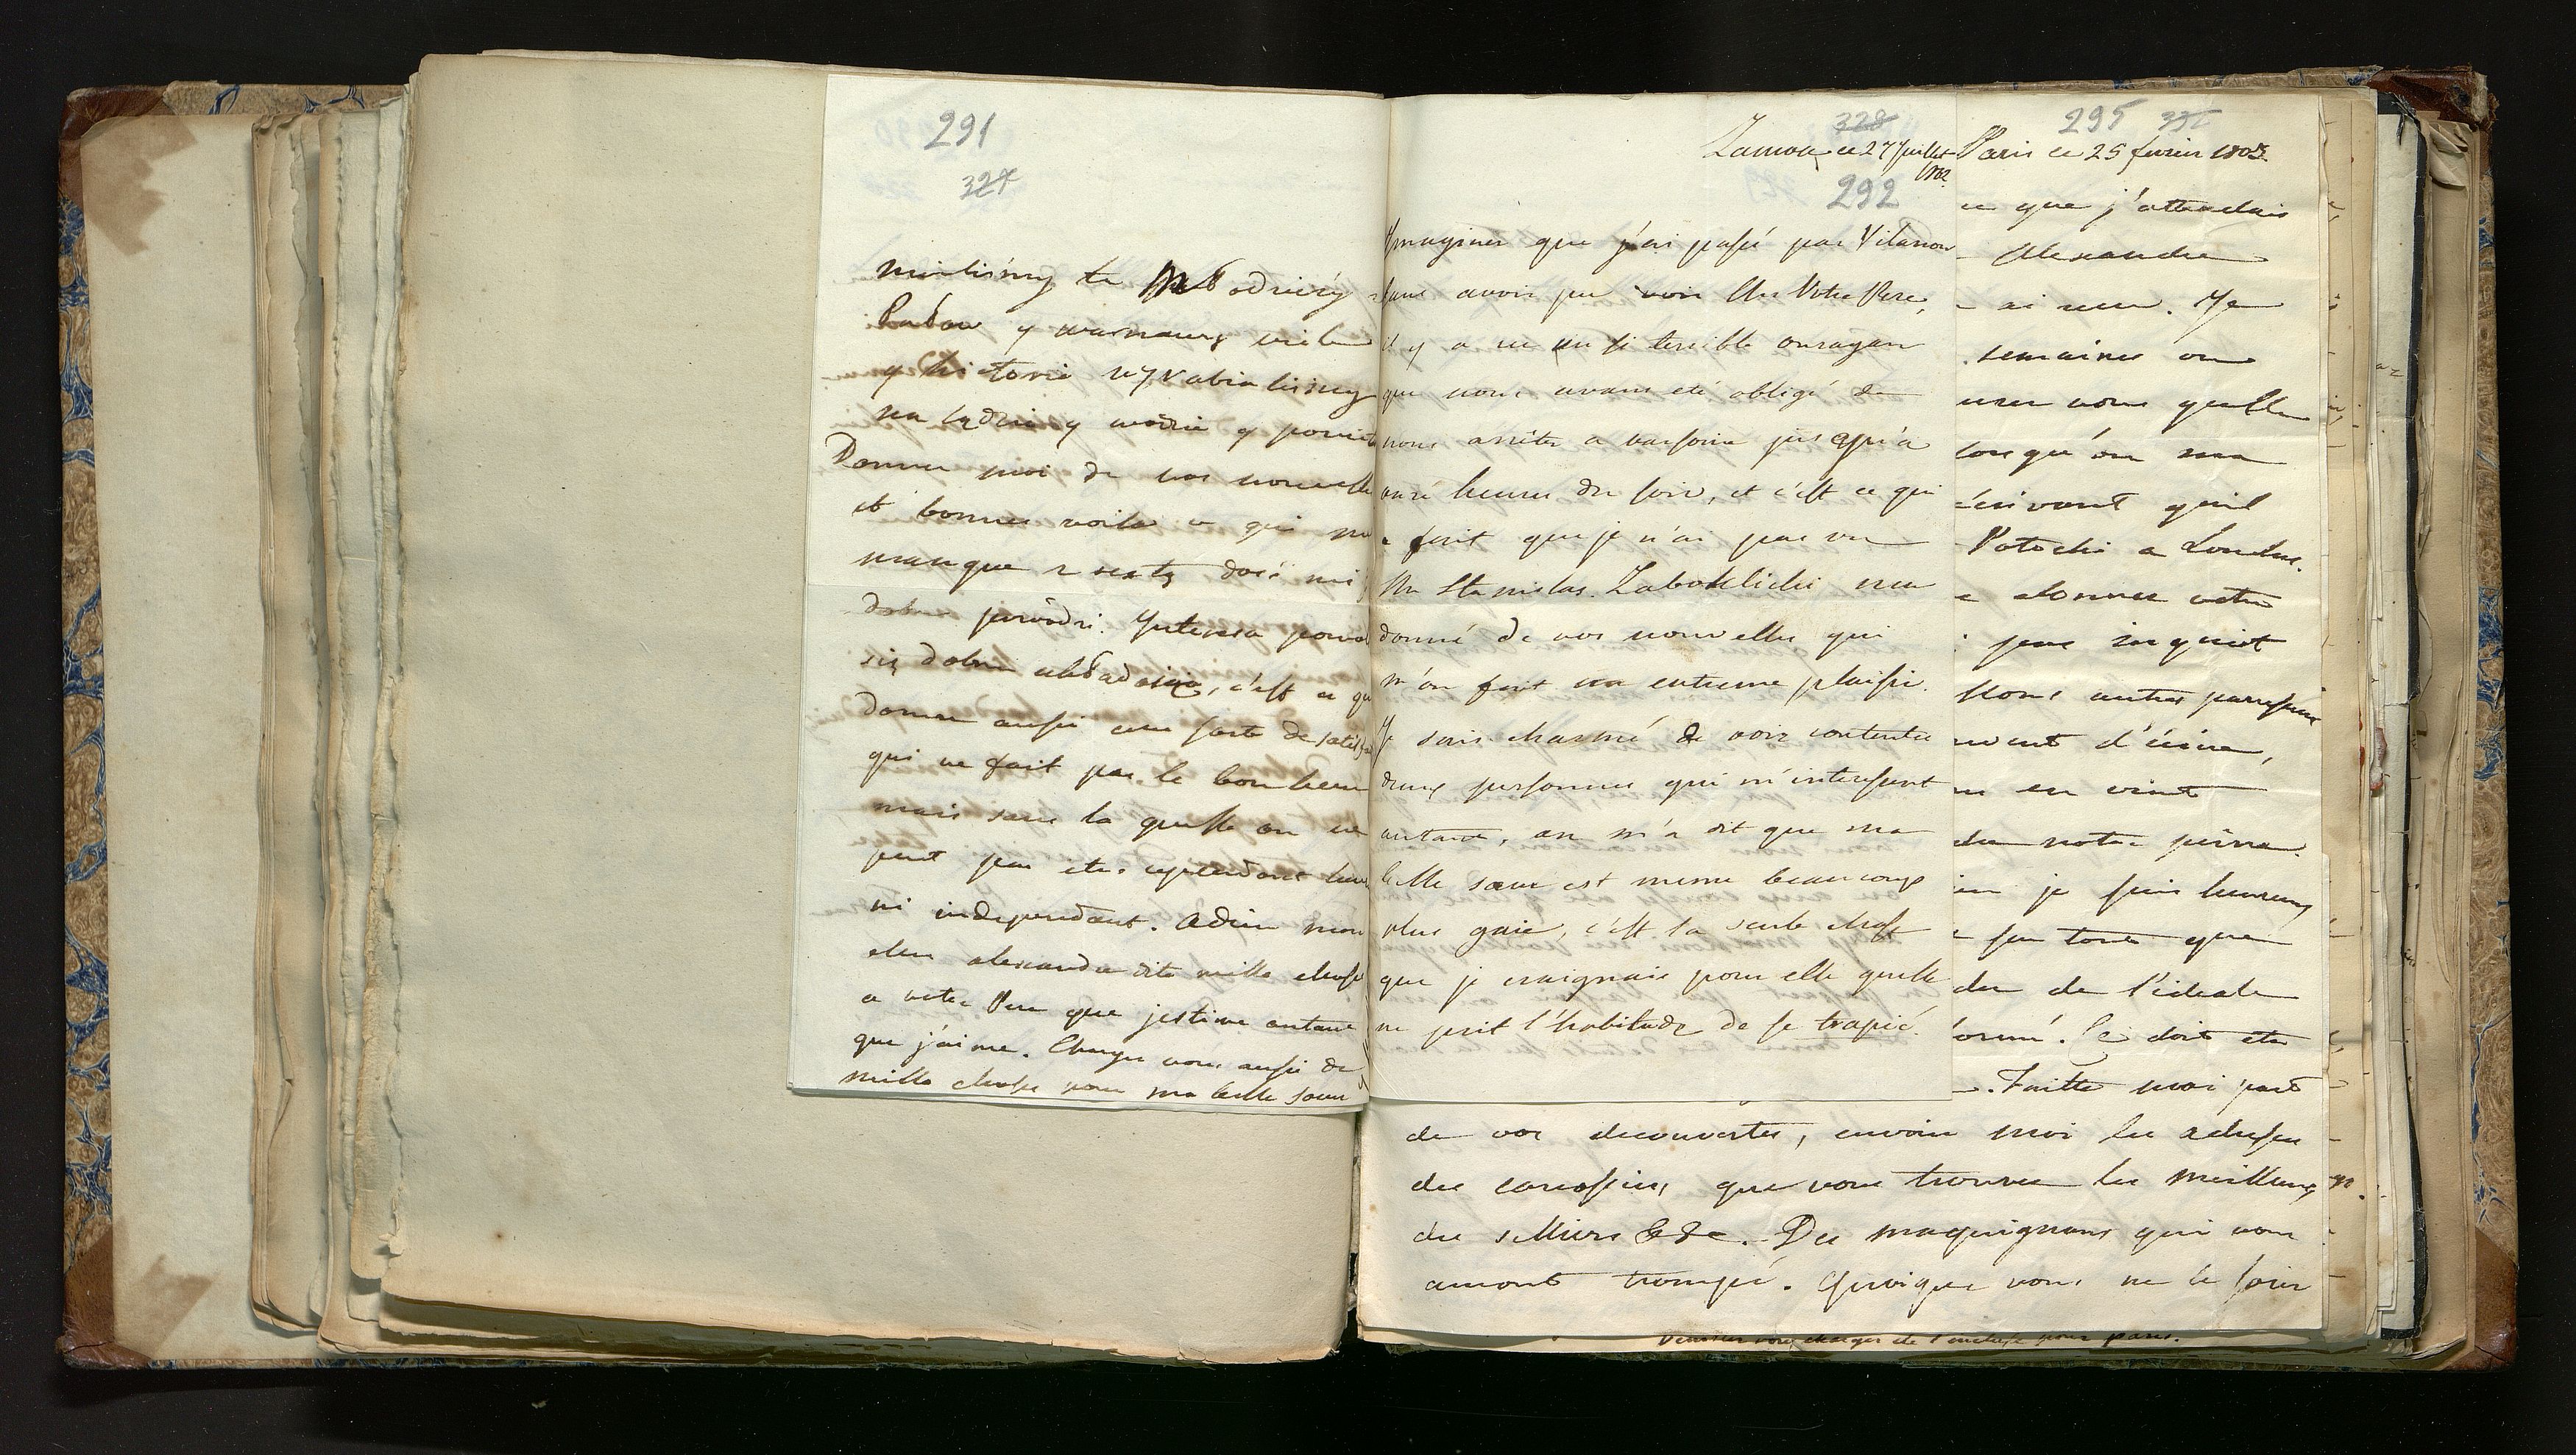 291
324
mieliśmy te Młodzież
y warmany wiele
Donner moi de vos nouvelle
et bonnes voila ce qui me
manque z resztą dość mi
dobrze powodzi. Interesa powol
się dobrze układaią, c'est ce qu
donne aussi une sorte de satisfa
qui ne fait pas le bonheur
mais sans la quelle on ne
peut pas etre cependant heur
ni independant. Adieu mon
cher alexandre dite mille choses
a votre Pere que jestime autant
que j'aime. Charger vous aussi de
mille choses pour ma belle soeur
328
Zamosc ce 27 Juillet
1802
292
Imaginez que j'ai passé par Vilanow
sans avoir pu voir Mr Votre Pere,
il y a eu un si terrible ouragan
que nous avons eté obligé de
nous arrêter a varsovie jusqu'a
onze heures du soir, et c'est ce qui
a fait que je n'ai pas vu
Mr Stanislas. Zabokliclki ma
donné de vos nouvelles qui
m'on fait un extreme plaisir.
Je suis charmé de voir contente
deux personnes qui m'interessent
autant, on m'a dit que ma
belle soeur est meme beaucoup
plus gaie, c'est la seule chose
que je craignais pour elle quelle
ne prit l'habitude de se trapić.
295 332
Paris ce 25 fevrier 1803
ce que j'attendais
Alexandre
ai recu. Je
semaines on
urer vous quelle
lorsqu'on ma
écrivant qu'il
Potocki a Londres.
donner votre
pas inquiet
Nous autres paresseux
uvent d'écrire,
en vient
notre
je suis heureux
tout que
de l'ideale
ormé. Ce doit etre
. Faitte moi part
de vos decouvertes, envoie moi les adresses
des carossiers que vous trouvez les meilleurs
des selliers &c. Des maquignons qui vous
auront trompé. Quoique vous ne le soiez
charger de l'incluse pour paris.